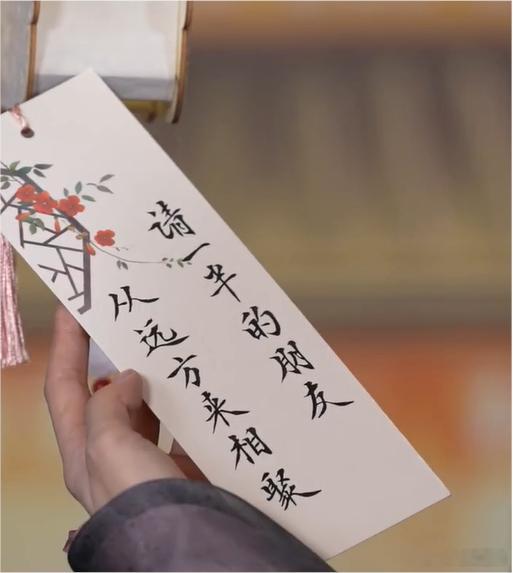 请一半的朋友
从远方来相聚